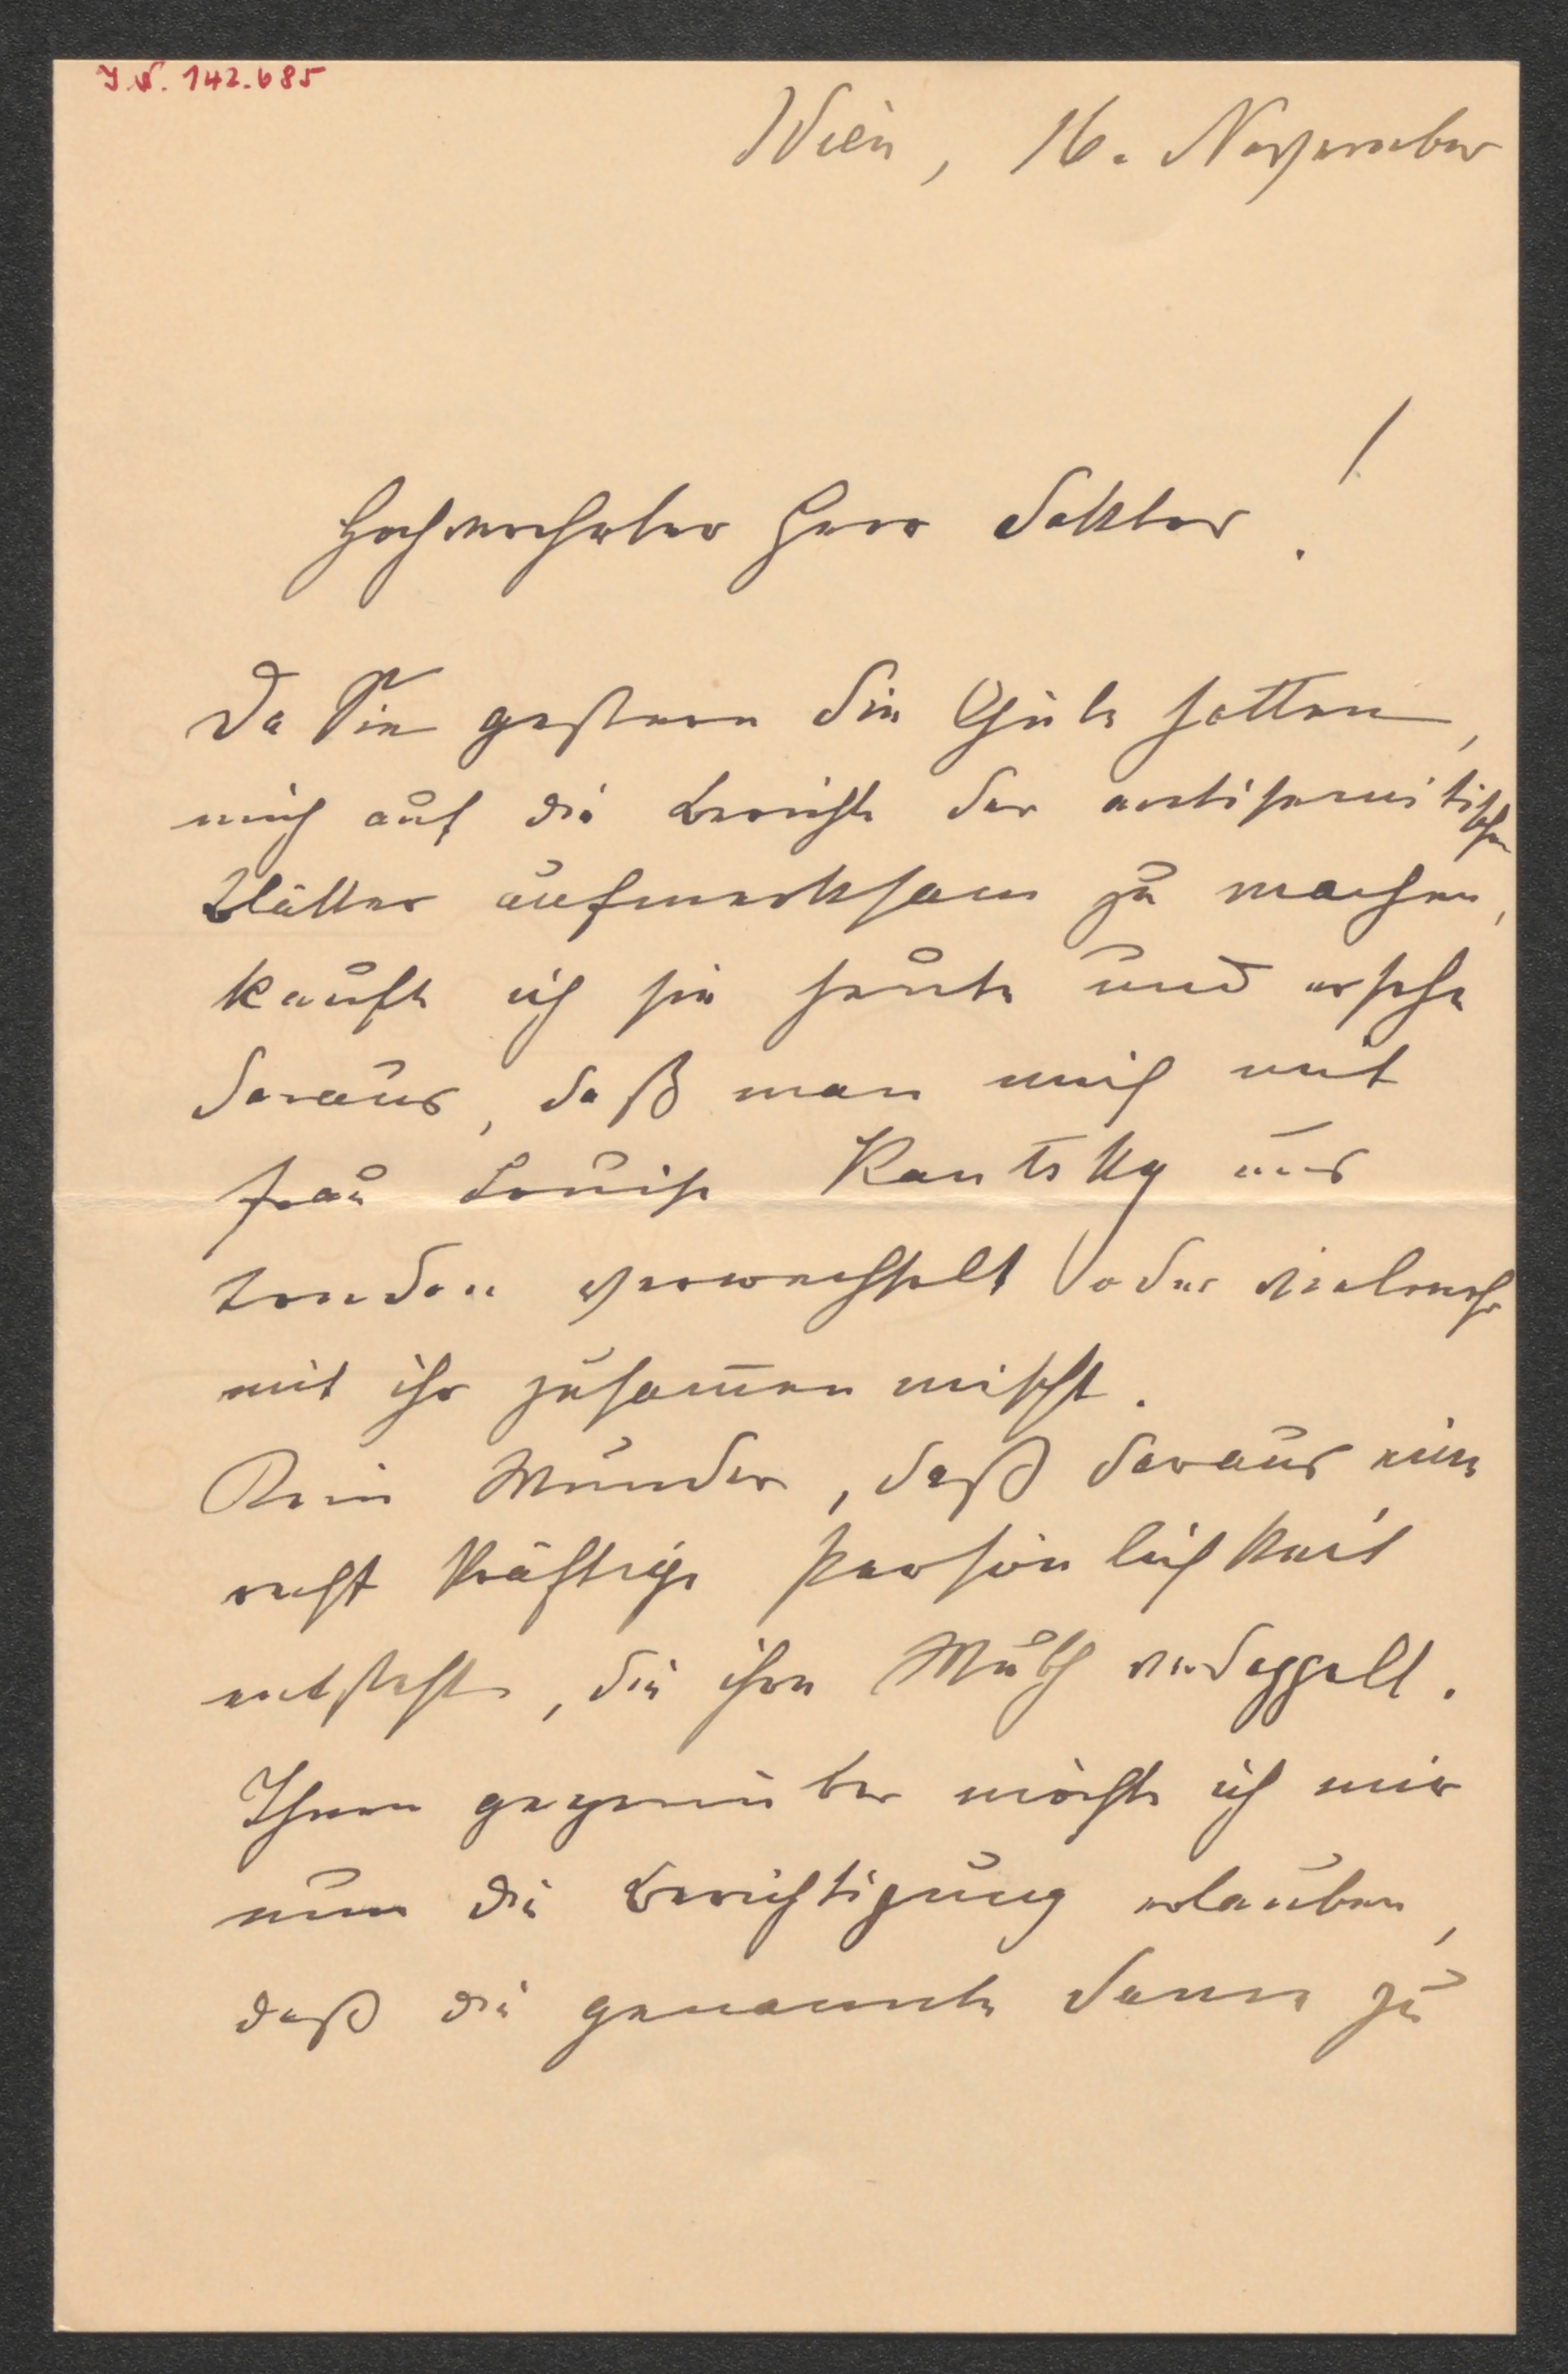 J.N. 142.685
Wien, 16. November
Hochverehrter Herr Doktor!
Da Sie gestern die Güte hatten,
mich auf die Berichte der antisemitischen
Blätter aufmerksam zu machen,
kaufte ich sie heute und ersehe
daraus, daß man mich mit
Frau Louise Kautsky aus
London verwechselt oder vielmehr
mit ihr zusam̅en mischt.
Kein Wunder, daß daraus eine
recht kräftige Persönlichkeit
entsteht, die ihre Muth verdoppelt.
Ihnen gegenüber möchte ich mir
nun die Berichtigung erlauben,
daß die genannte Dame zu